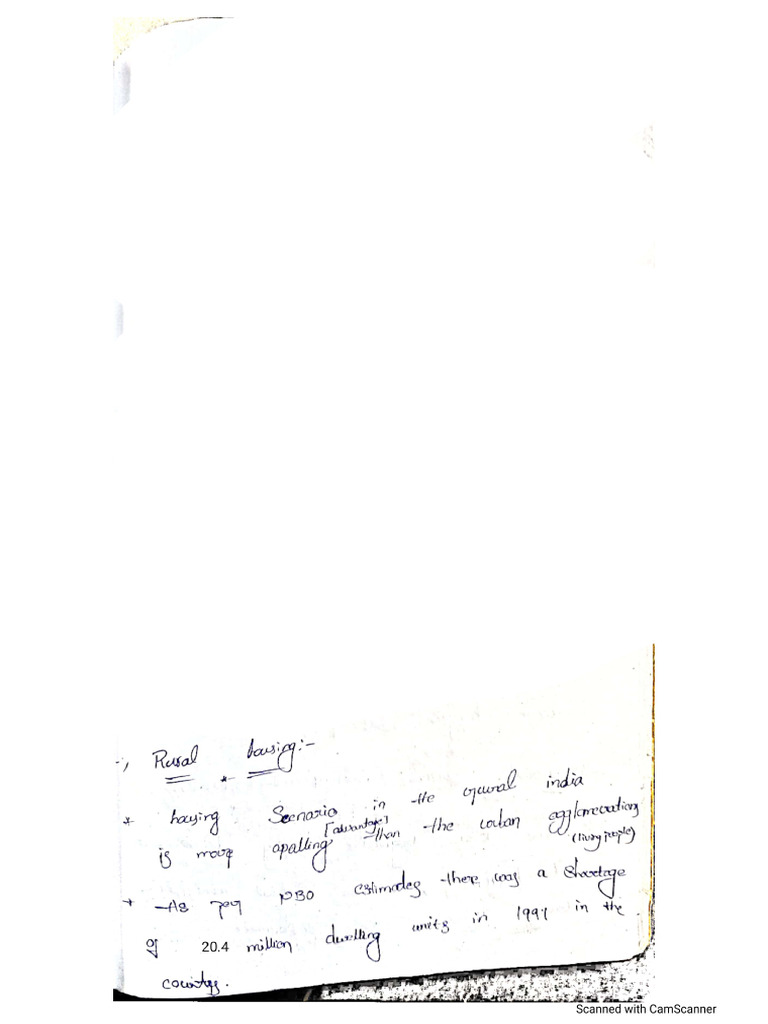 Rural housing:-
* housing Scenario in the rural india
is more apalling [advantage] than the urban agglomeration (living people)
* As per NBO estimates there was a shortage
of 20.4 million dwelling units in 1991 in the
country.
Scanned with CamScanner